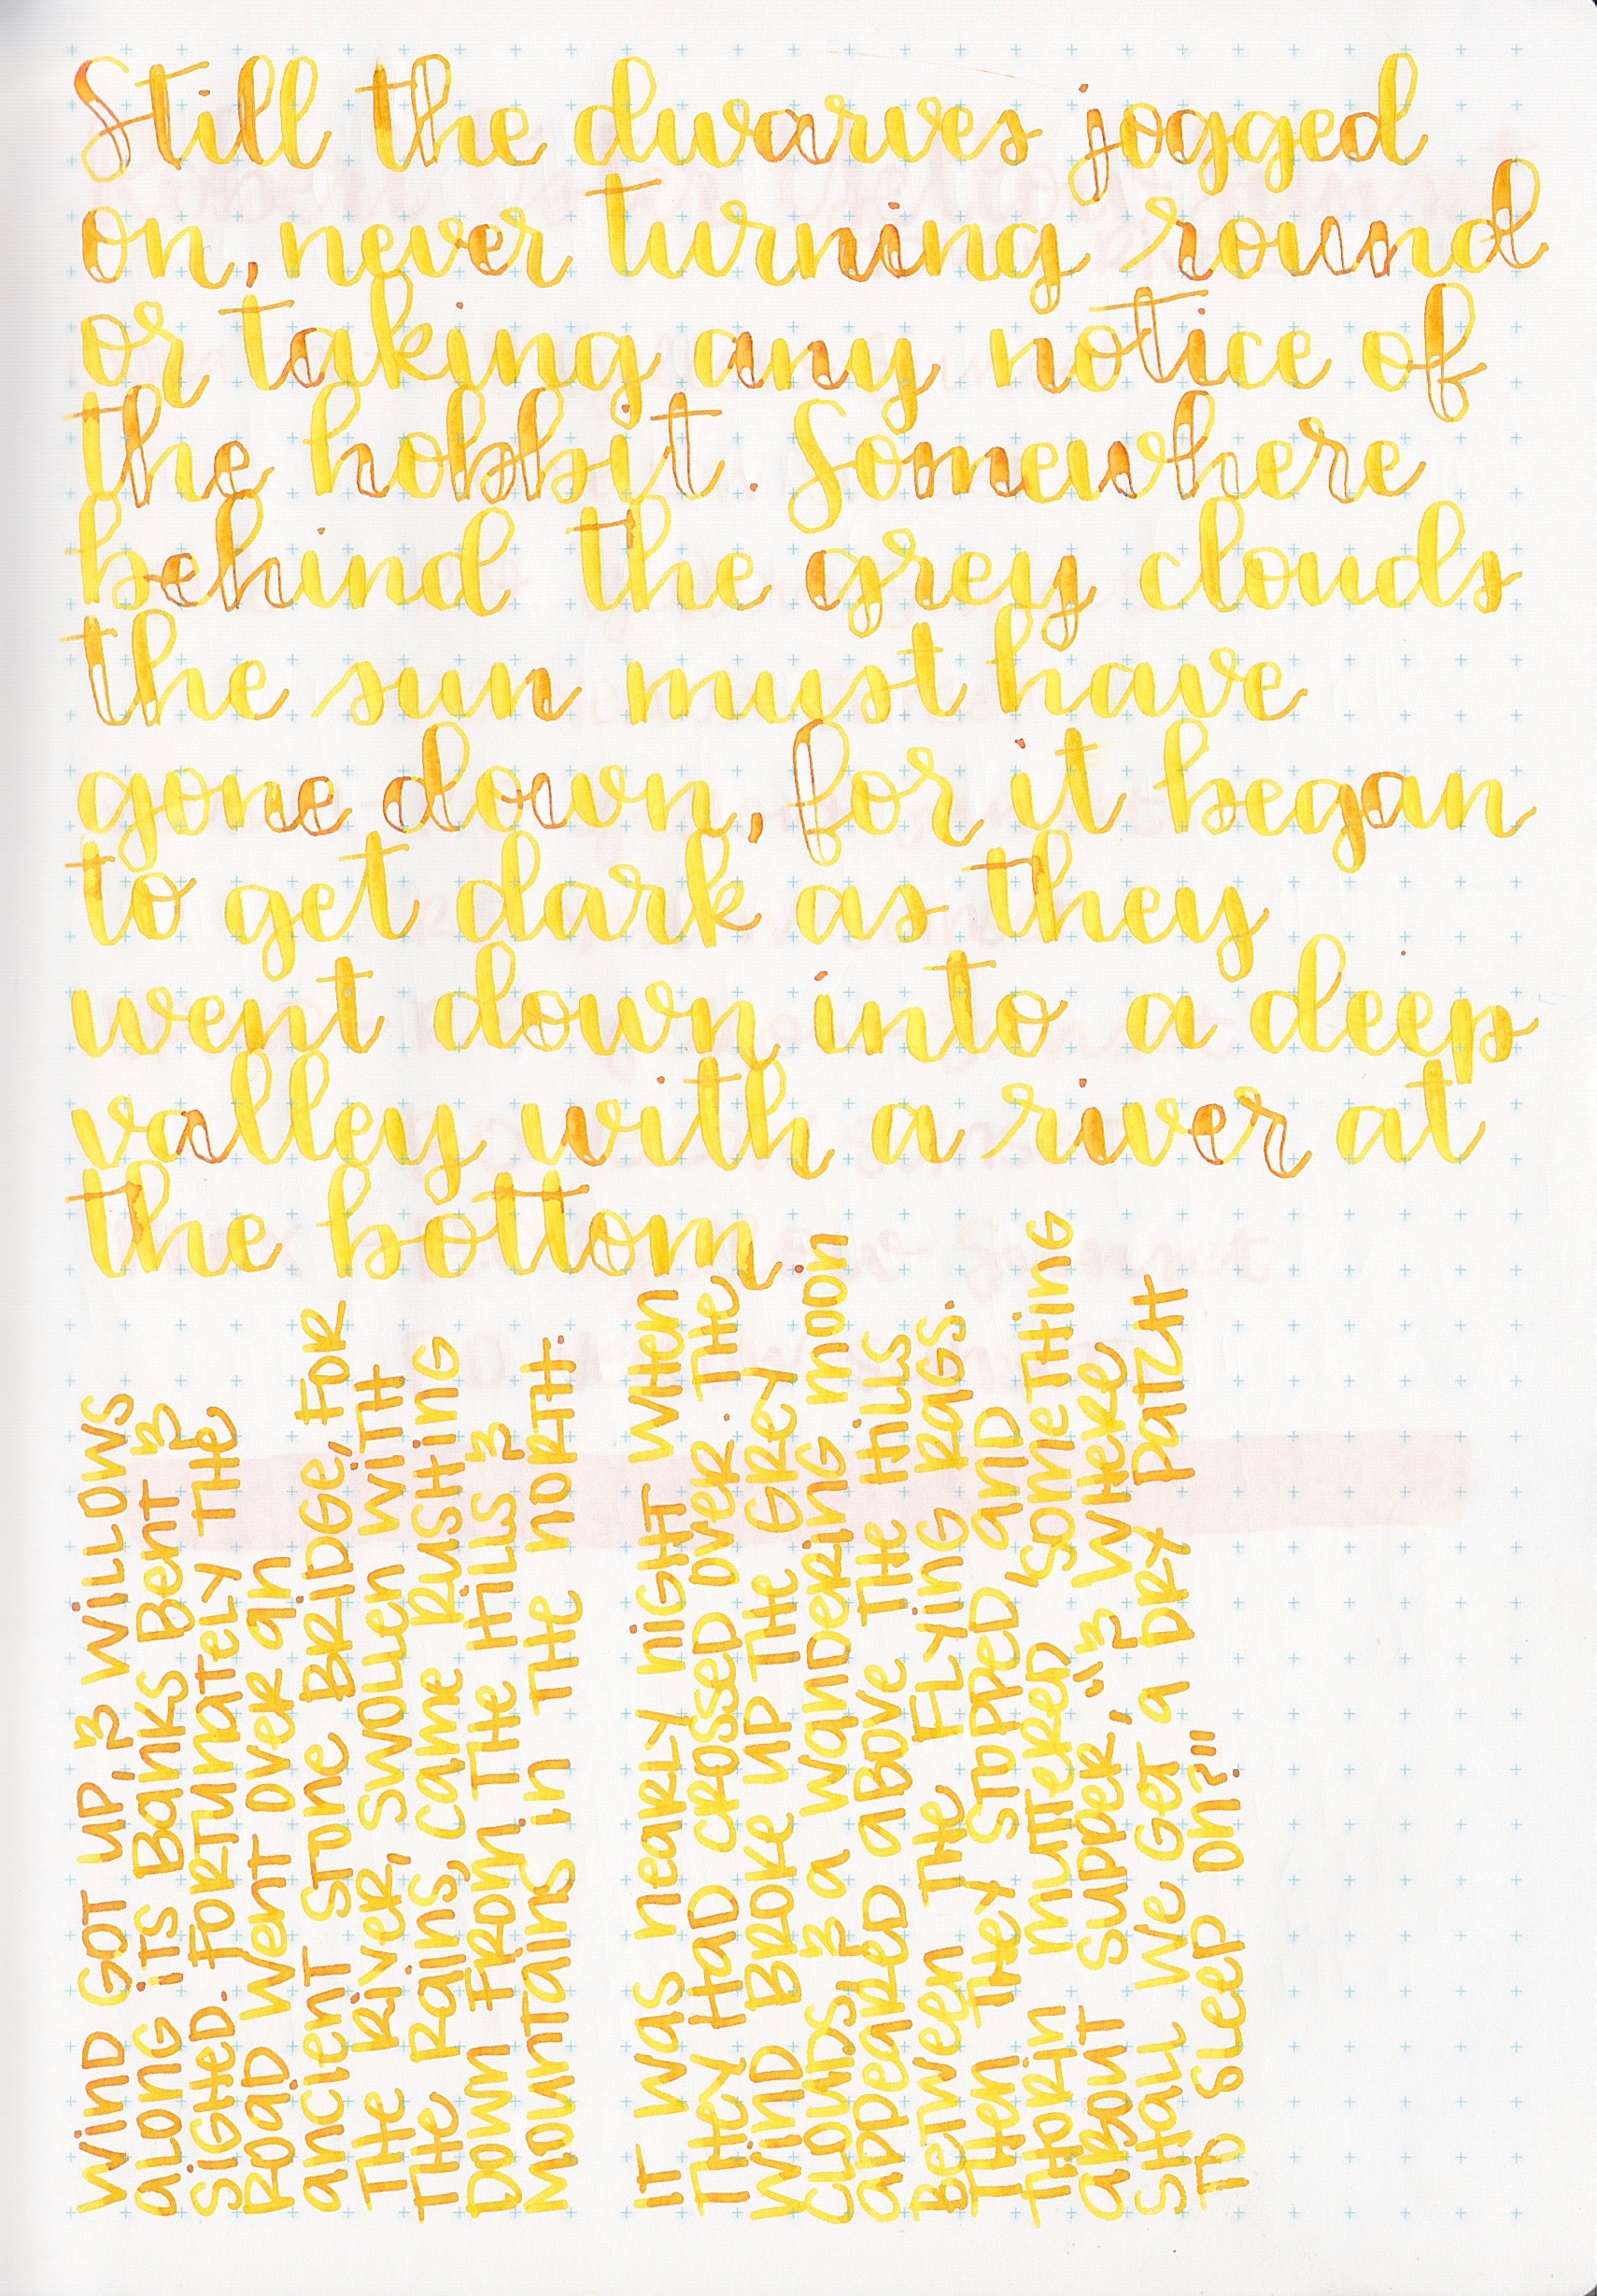 Still the dwarves jogged
on, never turning round
or taking any notice of
the hobbit. Somewhere
behind the grey clouds
the sun must have
gone down, for it began
to get dark as they
went down into a deep
valley with a river at
the bottom.
WIND GOT UP, & WILLOWS
ALONG ITS BANKS BENT &
SIGHED. FORTUNATELY THE
ROAD WENT OVER AN
ANCIENT STONE BRIDGE, FOR
THE RIVER, SWOLLEN WITH
THE RAINS, CAME RUSHING
DOWN FROM THE HILLS &
MOUNTAINS IN THE NORTH.
IT WAS NEARLY NIGHT WHEN
THEY HAD CROSSED OVER. THE
WIND BROKE UP THE GREY
CLOUDS, & A WANDERING MOON
APPEARED ABOVE THE HILLS
BETWEEN THE FLYING RAGS.
THEN THEY STOPPED AND
THORIN MUTTERED 'SOMETHING
ABOUT SUPPER,' "& WHERE
SHALL WE GET A DRY PATCH
TO SLEEP ON?"